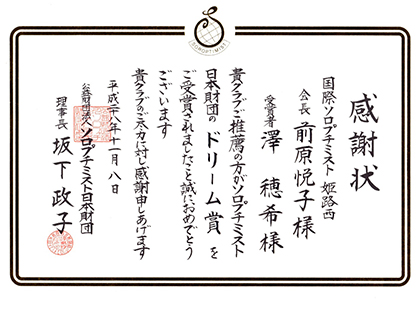 SOROPTIMIST
感謝状
国際ソロプチミスト 姫路西
会長 前原悦子様
受賞者 澤 穂希様
貴クラブご推薦の方がソロプチミスト
日本財団の ドリーム賞 を
ご受賞されましたこと誠におめでとう
ございます
貴クラブのご尽力に対し感謝申しあげます
平成二十八年十一月八日
公益財団法人 ソロプチミスト日本財団
理事長 坂下政子